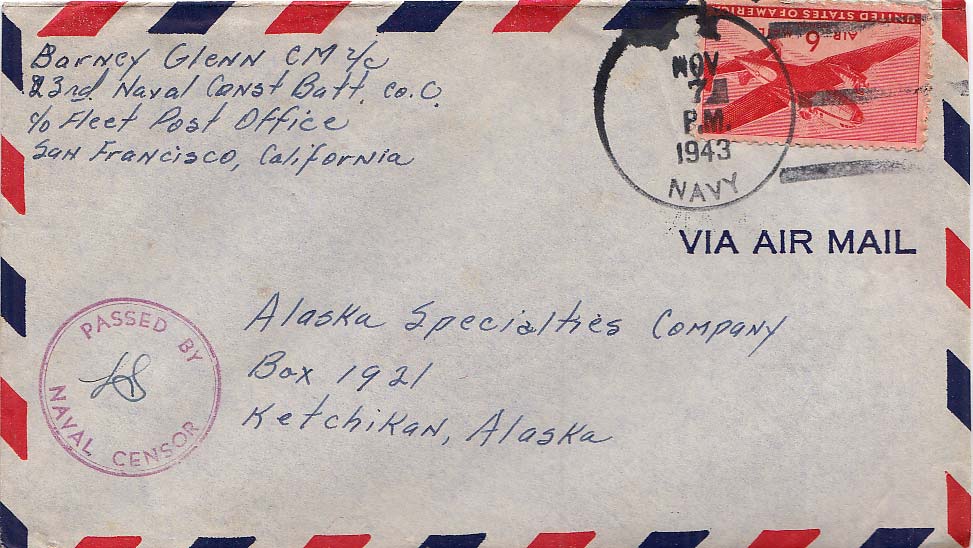 Barney Glenn CM 2/c
23rd Naval Const Batt. Co. C
c/o Fleet Post Office
San Francisco, California
UNITED STATES OF AMERICA
AIR MAIL
6
NOV
7
P.M.
1943
NAVY
VIA AIR MAIL
PASSED BY
NAVAL CENSOR
Alaska Specialties Company
Box 1921
Ketchikan, Alaska